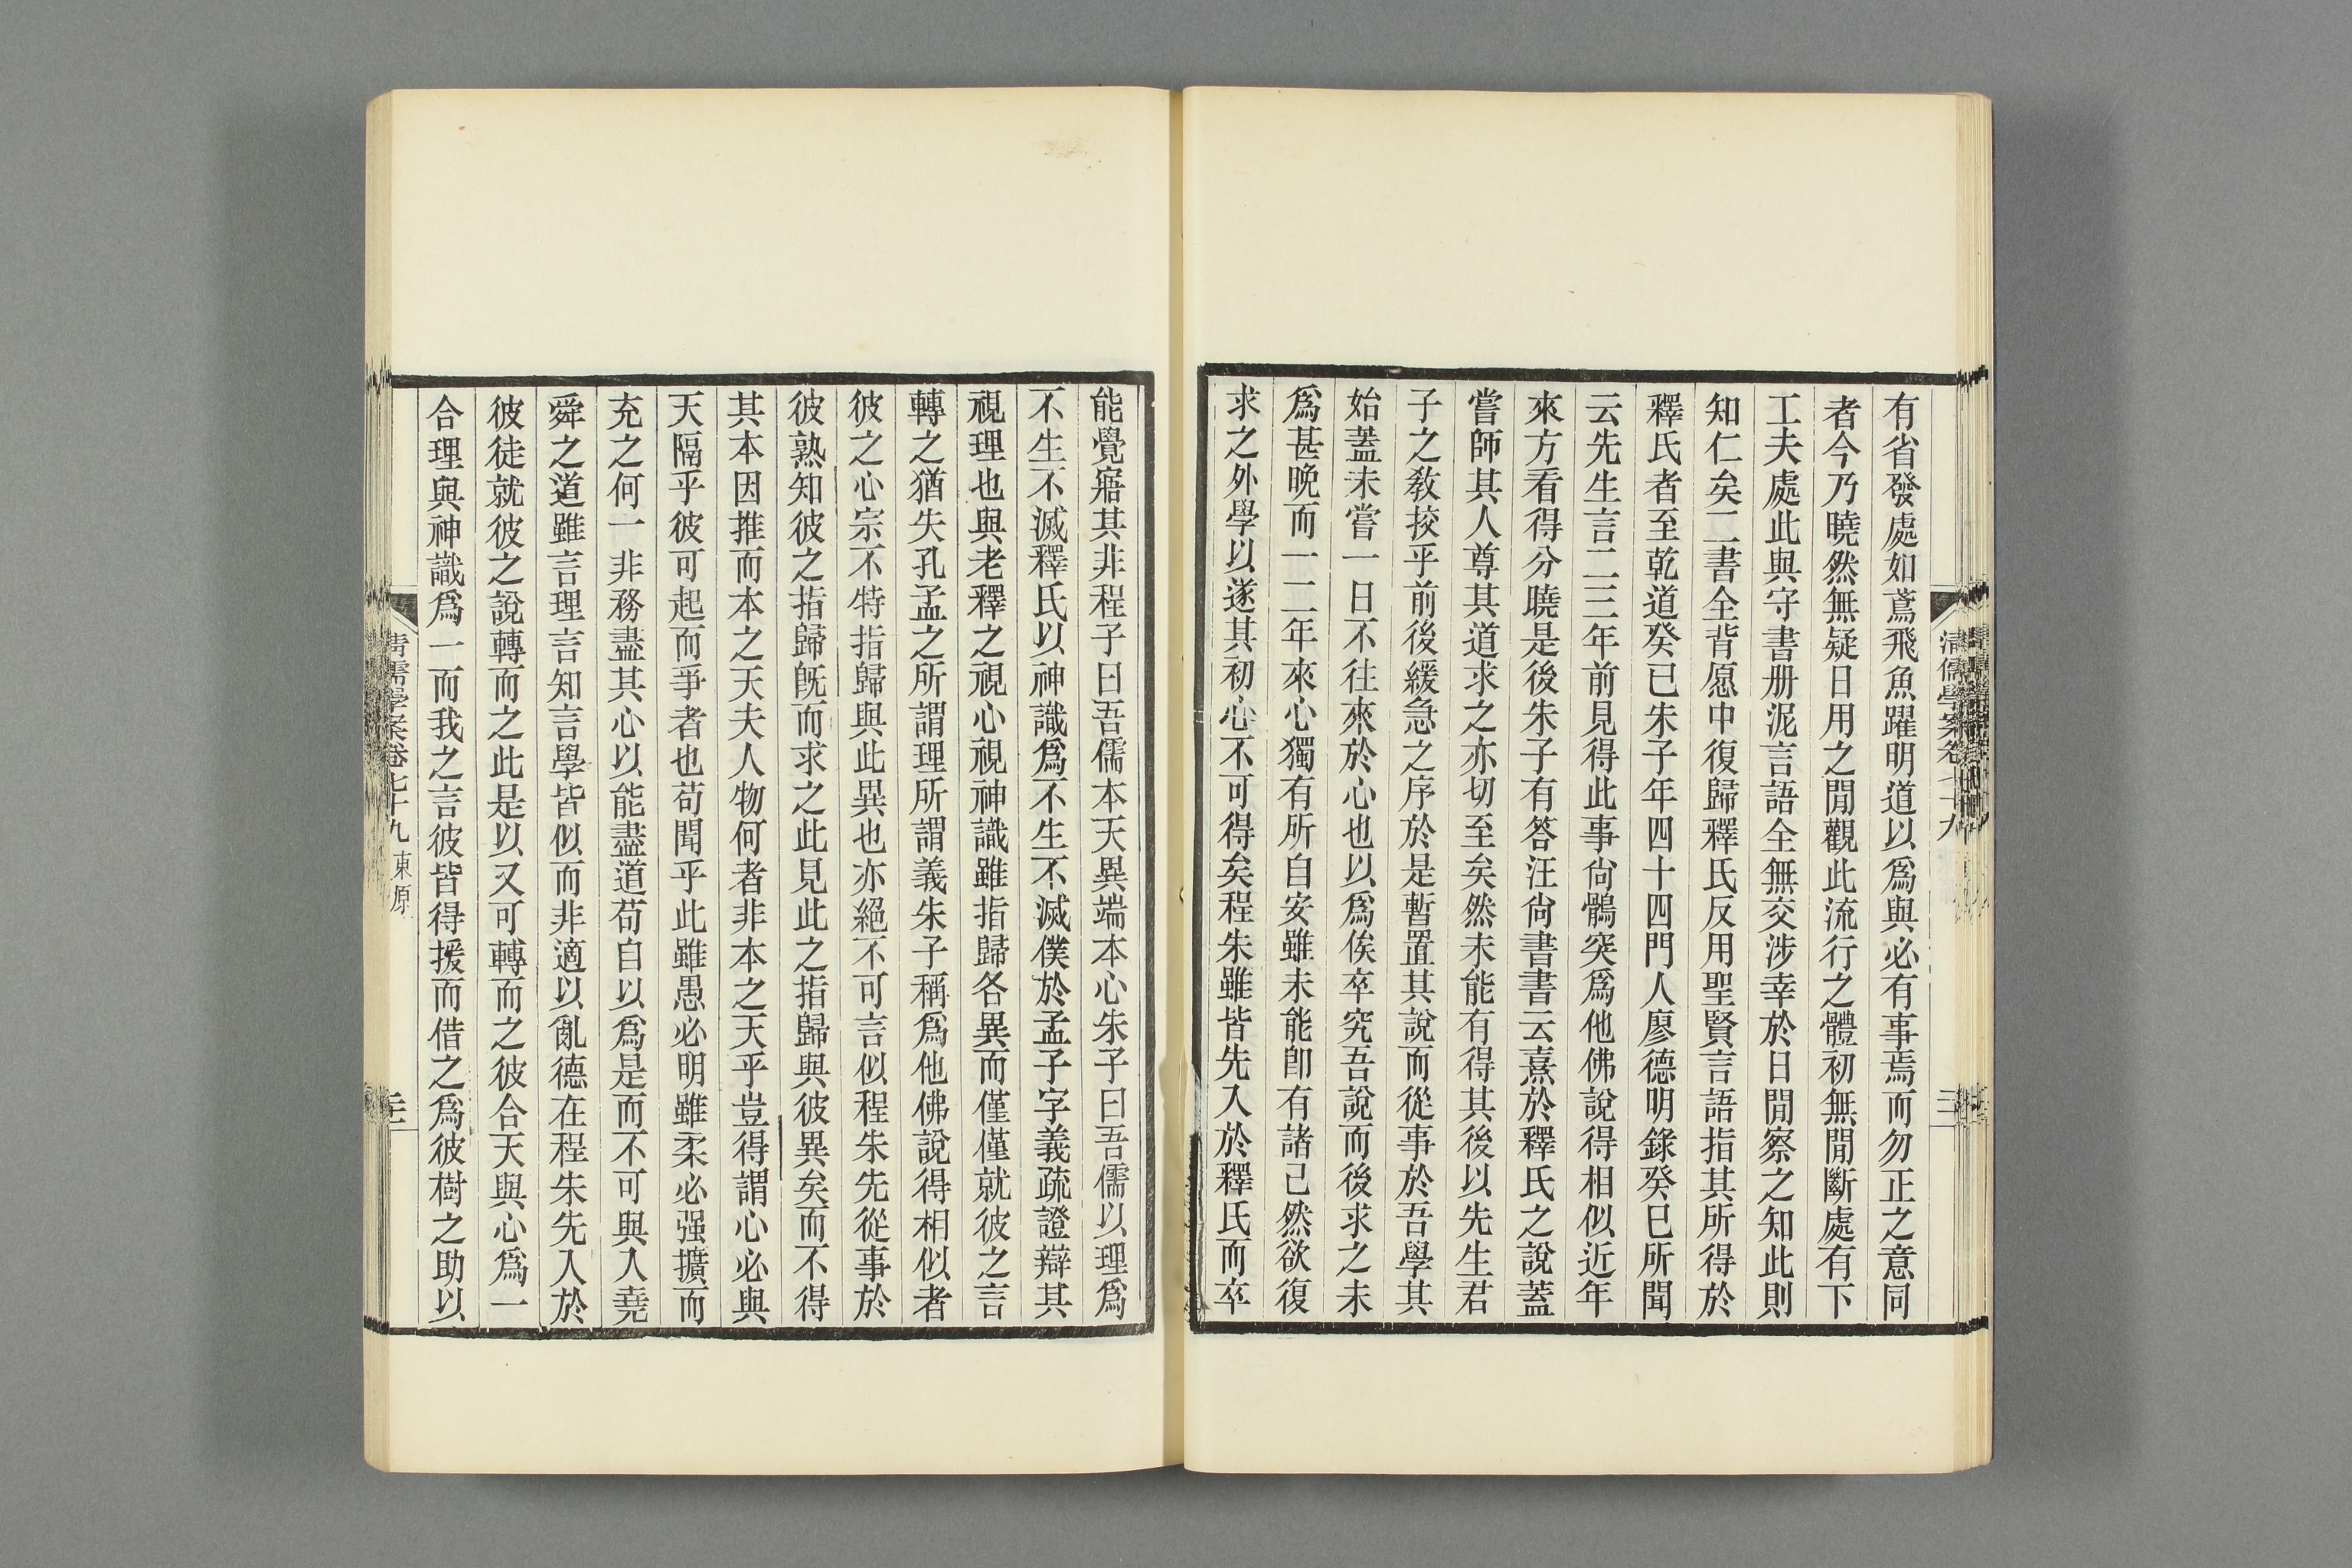 有省發處如鳶飛魚躍明道以爲與必有事焉而勿正之意同
者今乃曉然無疑日用之閒觀此流行之體初無閒斷處有下
工夫處此與守書册泥言語全無交涉幸於日閒察之知此則
知仁矣二書全背愿中復歸釋氏反用聖賢言語指其所得於
釋氏者至乾道癸巳朱子年四十四門人廖德明錄癸巳所聞
云先生言二三年前見得此事尙鶻突爲他佛說得相似近年
來方看得分曉是後朱子有答汪尙書書云熹於釋氏之說蓋
嘗師其人尊其道求之亦切至矣然未能有得其後以先生君
子之敎挍乎前後緩急之序於是暫置其說而從事於吾學其
始蓋未嘗一日不往來於心也以爲俟卒究吾說而後求之未
爲甚晚而一二年來心獨有所自安雖未能卽有諸己然欲復
求之外學以遂其初心不可得矣程朱雖皆先入於釋氏而卒
能覺寤其非程子曰吾儒本天異端本心朱子曰吾儒以理爲
不生不滅釋氏以神識爲不生不滅僕於孟子字義疏證辯其
視理也與老釋之視心視神識雖指歸各異而僅僅就彼之言
轉之猶失孔孟之所謂理所謂義朱子稱爲他佛說得相似者
彼之心宗不特指歸與此異也亦絕不可言似程朱先從事於
彼熟知彼之指歸旣而求之此見此之指歸與彼異矣而不得
其本因推而本之天夫人物何者非本之天乎豈得謂心必與
天隔乎彼可起而爭者也苟聞乎此雖愚必明雖柔必强擴而
充之何一非務盡其心以能盡道苟自以爲是而不可與入堯
舜之道雖言理言知言學皆似而非適以亂德在程朱先入於
彼徒就彼之說轉而之此是以又可轉而之彼合天與心爲一
合理與神識爲一而我之言彼皆得援而借之爲彼樹之助以
清儒學案卷七十九 東原